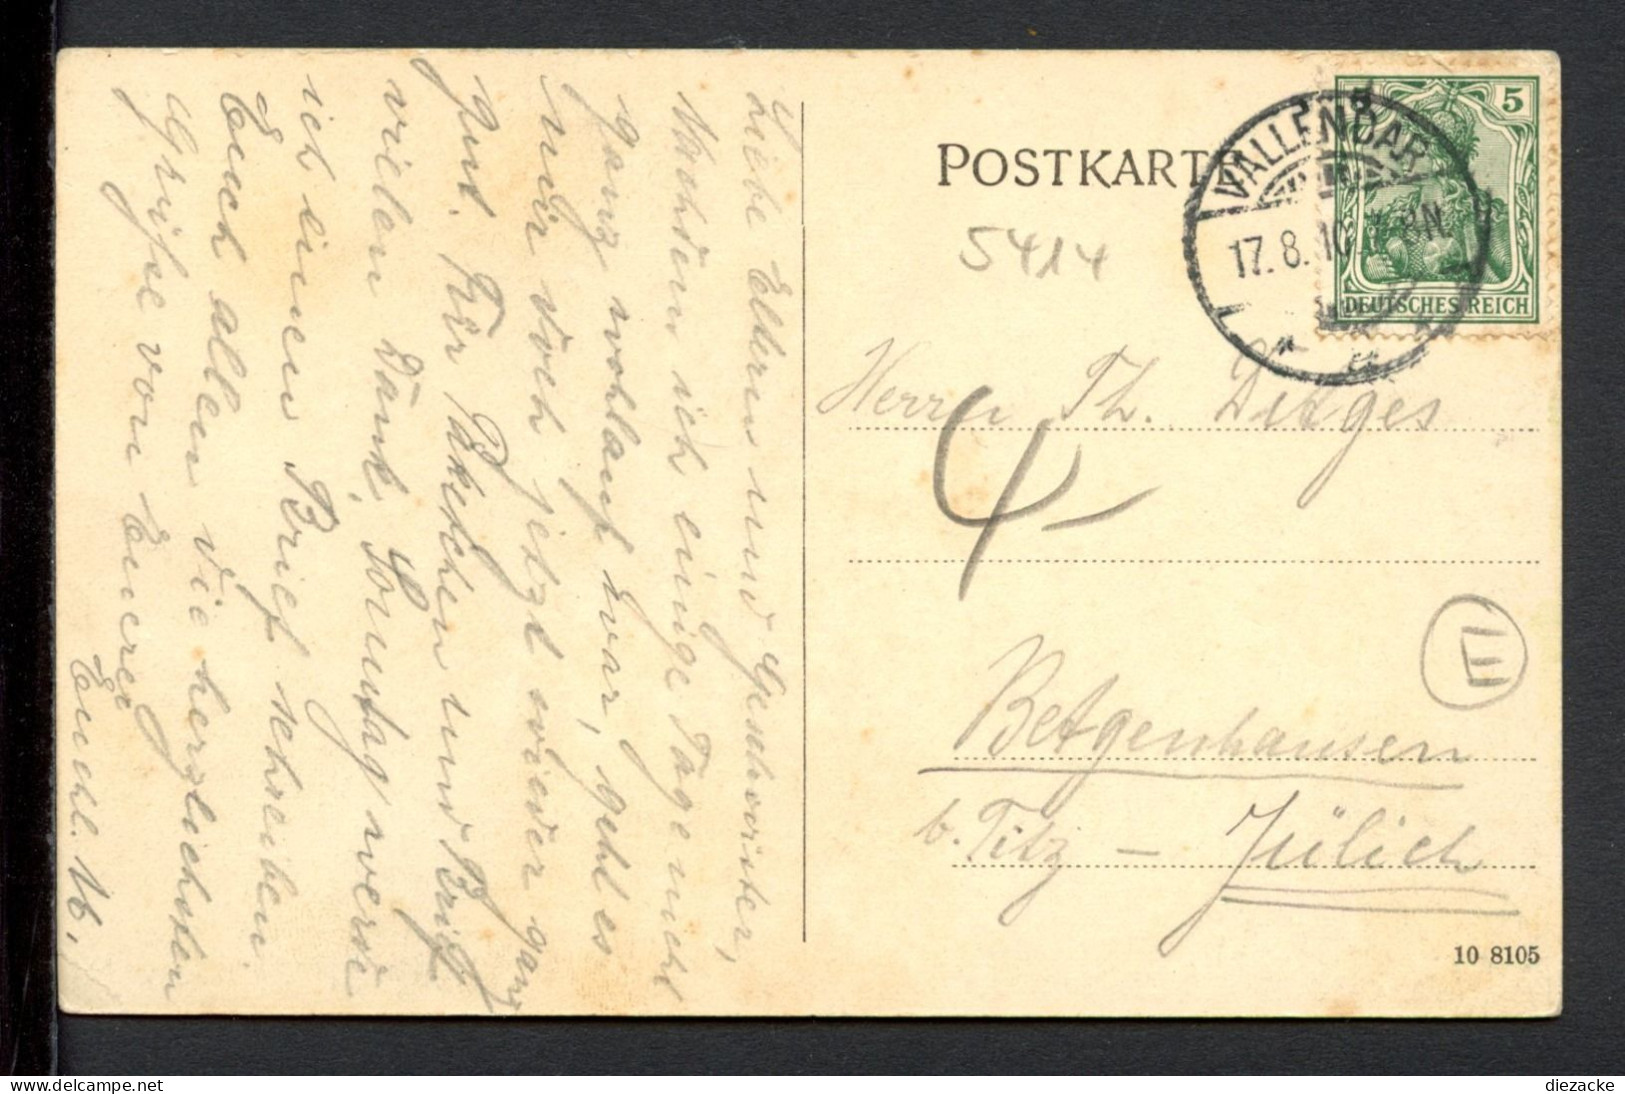 Liebe Eltern und Geschwister,
Nachdem ich einige Tage nicht
ganz wohlauf war, geht es
mir doch jetzt wieder ganz
gut. Für Päkchen und Brief
vielen Dank, Sonntag werde
ich einen Brief schreiben.
Euch allen die herzlichsten
Grüße von Euerer
POSTKARTE
5414
VALLENDAR
17.8.10 8N.
5
DEUTSCHES REICH
Herrn Th. Ditges
4
E
Betgenhausen
b. Titz - Jülich
10 8105
diezacke